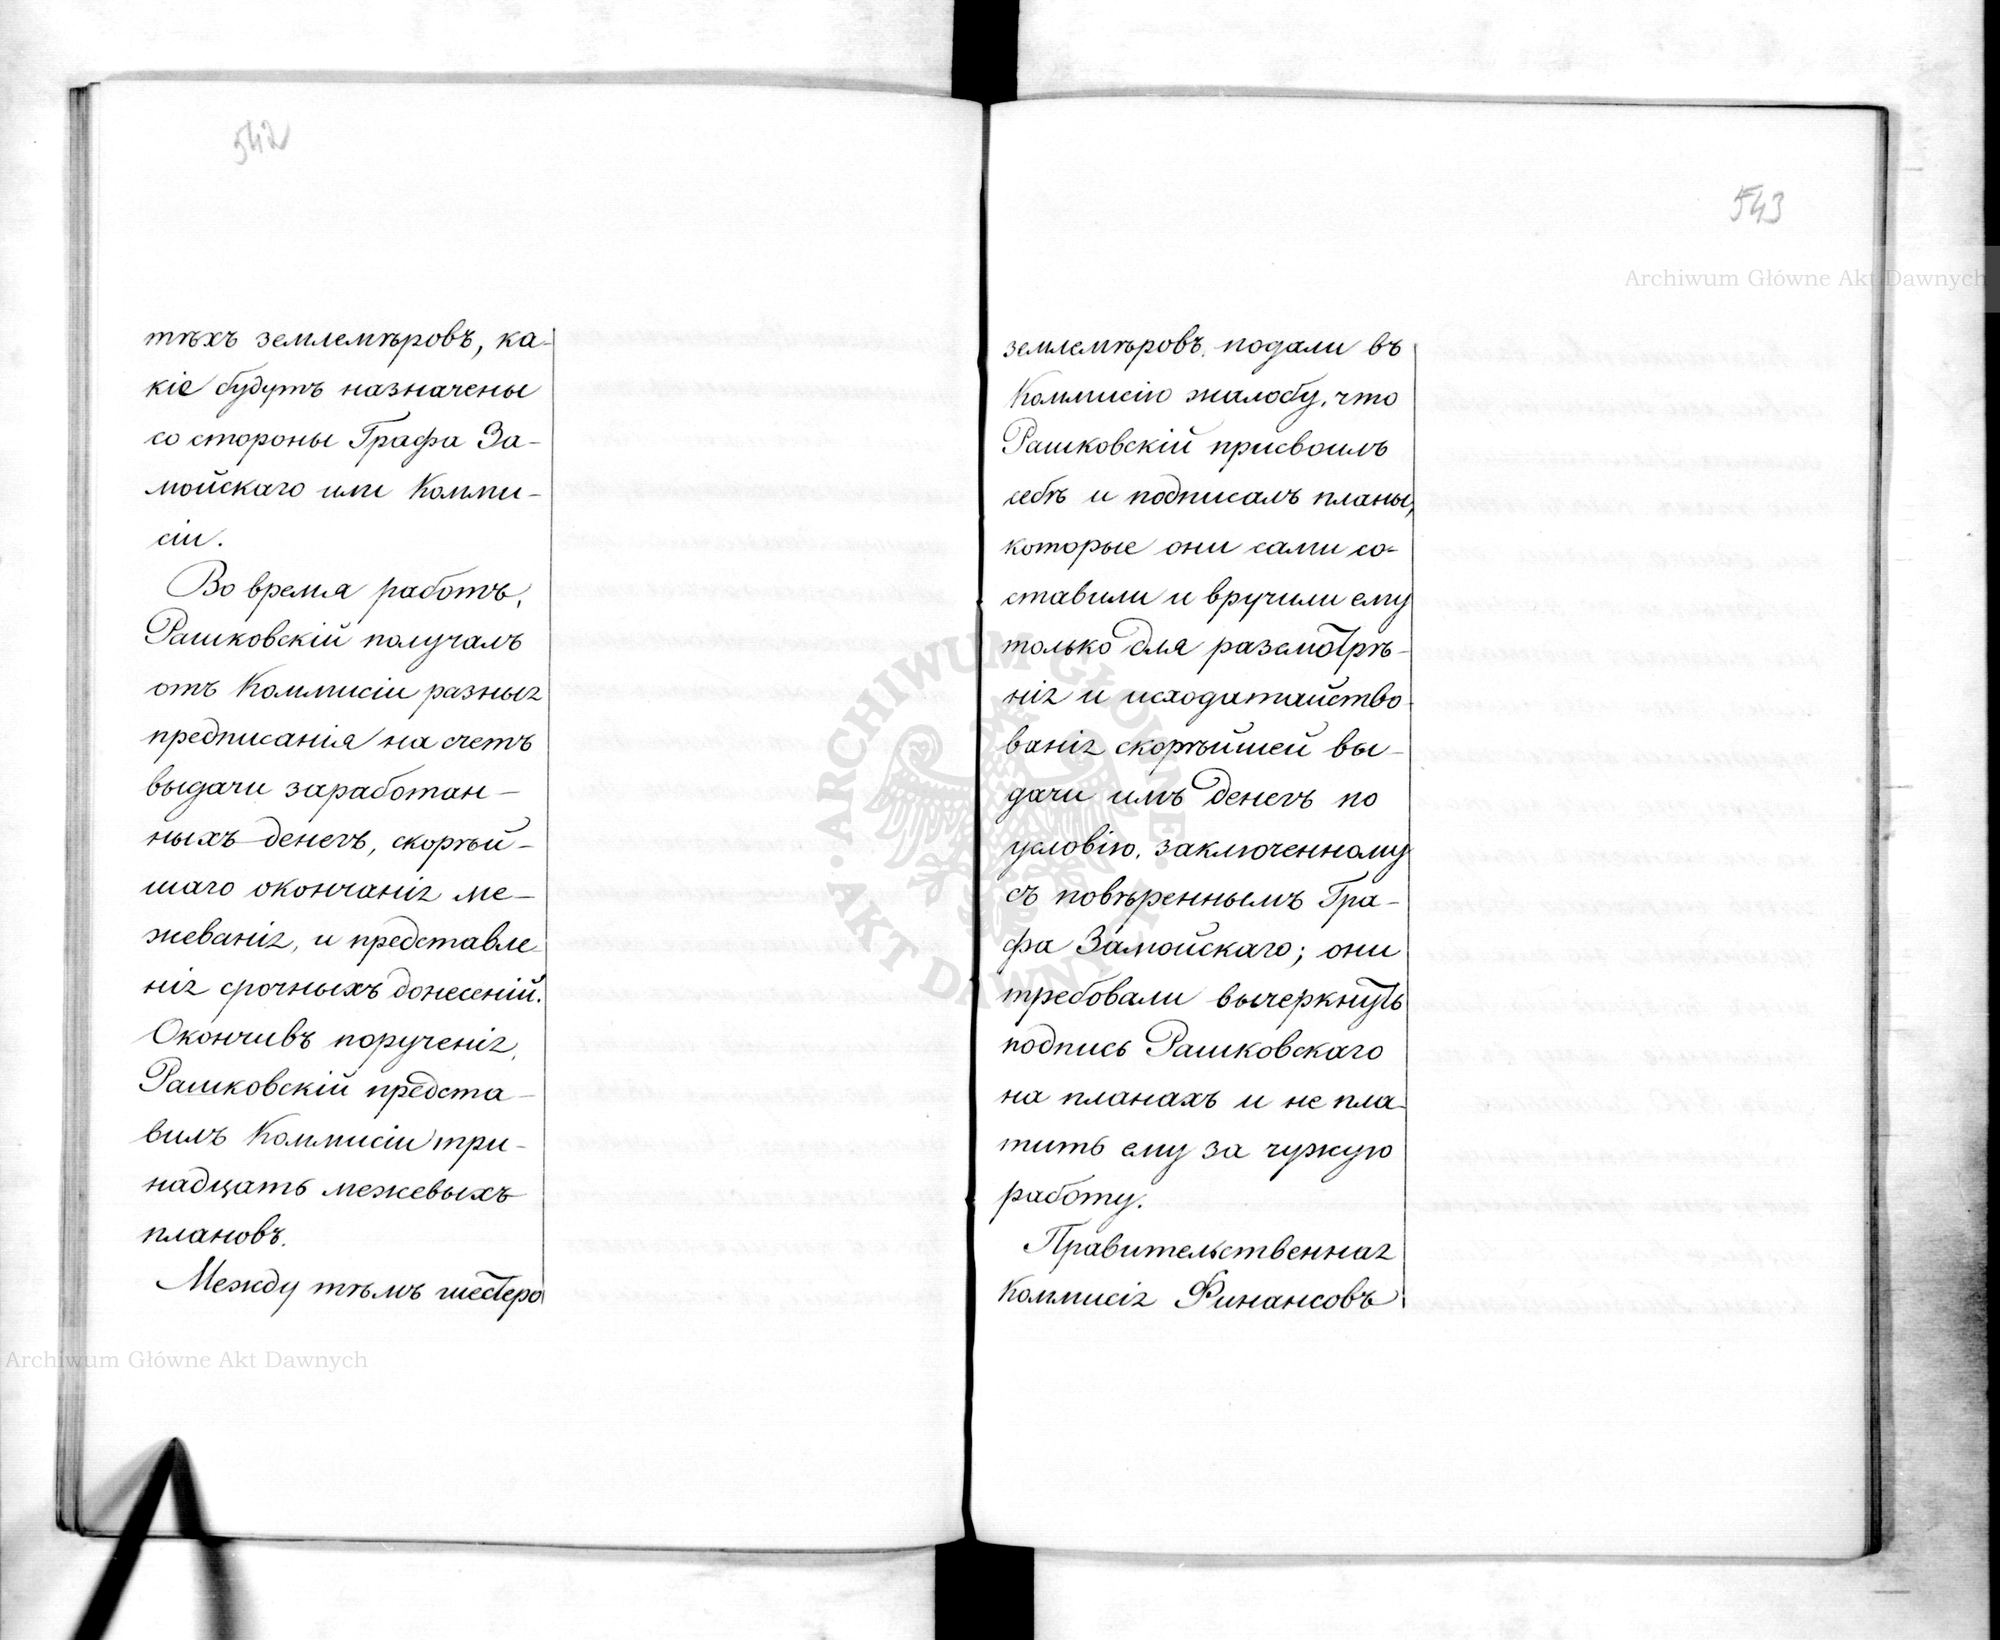 542
тѣхъ землемѣровъ, ка-
кіе будутъ назначены
со стороны Графа За-
мойскаго или Комми-
сіи.
Во время работъ,
Рашковскій получалъ
отъ Коммисіи разныя
предписанія на счетъ
выдачи заработан-
ныхъ денегъ, скорѣй-
шаго окончанія ме-
жеванія, и представле
нія срочныхъ донесеній.
Окончивъ порученія,
Рашковскій предста-
вилъ Коммисіи три-
надцать межевыхъ
плановъ.
Между тѣмъ шестеро
543
землемѣровъ подали въ
Коммисію жалобу, что
Рашковскій присвоилъ
себѣ и подписалъ планы,
которые они сами со-
ставили и вручили ему
только для разсмотрѣ-
нія и исходатайство-
ванія скорѣйшей вы-
дачи имъ денегъ по
условію, заключенному
съ повѣреннымъ Гра-
фа Замойскаго; они
требовали вычеркнуть
подпись Рашковскаго
на планахъ и не пла-
тить ему за чужую
работу.
Правительственная
Коммисія Финансовъ
Archiwum Główne Akt Dawnych
Archiwum Główne Akt Dawnych
· ARCHIWUM GŁÓWNE · AKT DAWNYCH